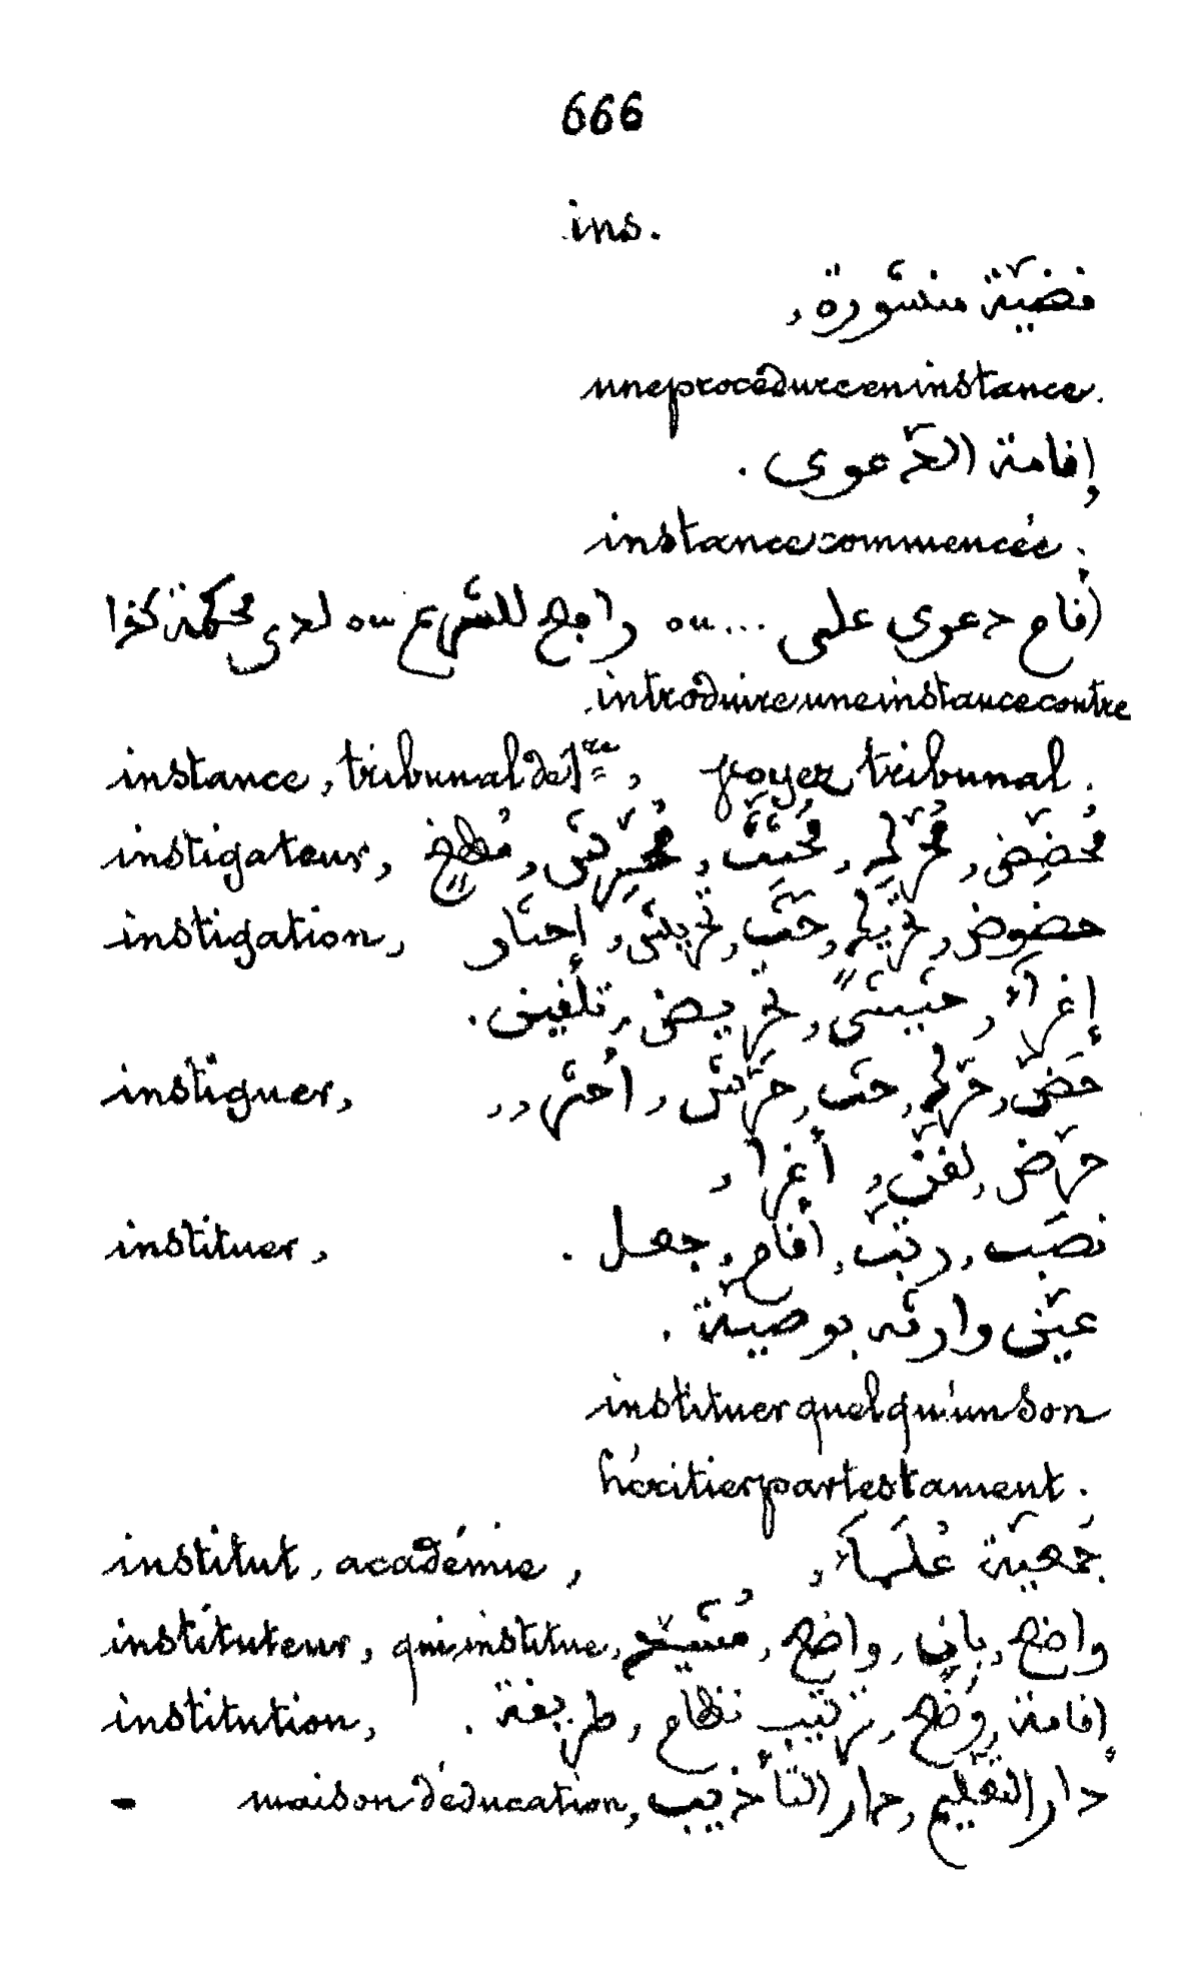 666
ins.
قضيّة منشورة,
une procédure en instance.
إقامة الدّعوى.
instance commencée.
أقام دعوى على ... ou راجع للشرع ou لدى محكمة كذا
introduire une instance contre
instance, tribunal de 1re, voyez tribunal.
instigateur, مُحضّض,
instigation, حضوض,
إغراء, تحريض, تلقين.
instiguer, حَضّ,
حرّض, لقّن, أغرا,
instituer, نصَب, رتّب, أقام, جعل.
عيّن وارثه بوصيّة.
instituer quelqu'un son
héritier par testament.
institut, académie, جَمعيّة عُلَمَاء,
instituteur, qui institue, واضع, باني, واضع, مُشيّد
institution, إقامة, وَضع, ترتيب نظام, طريقة.
– maison d'éducation, دار التعليم, دار التأذيب